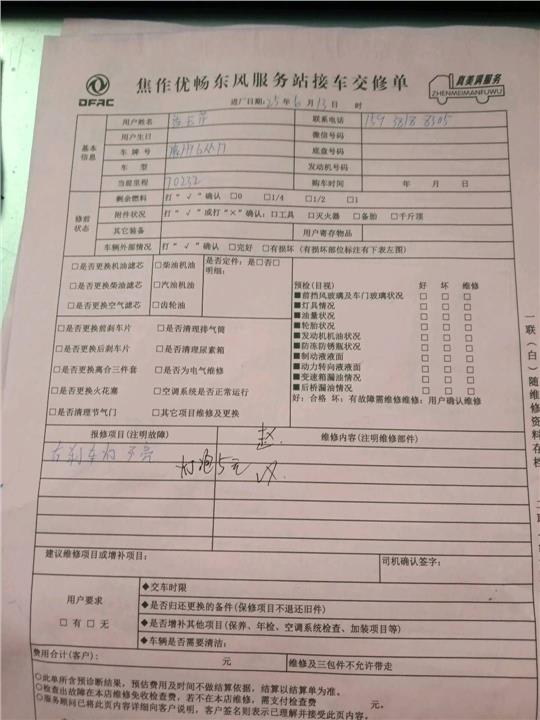 DFAC
焦作优畅东风服务站接车交修单
真美满服务
ZHENMEIMANFUWU
进厂日期:25年6月13日 时
基本信息
用户姓名 联系电话 159 3818 8505
用户生日 微信号码
车牌号 底盘号码
车型 发动机号码
当前里程 70232 购车时间 年 月 日
修前状态
剩余燃料 打"√"确认 □0 □1/4 □1/2 □1
附件状况 打"√"或打"×"确认:□工具 □灭火器 □备胎 □千斤顶
其它装备 用户寄存物品
车辆外部情况 打"√"确认 □完好 □有损坏(有损坏部位标注有下表左图)
□是否更换机油滤芯 □柴油机油 是否定件:是□否□
明细:
□是否更换柴油滤芯 □汽油机油
□是否更换空气滤芯 □齿轮油
□是否更换前刹车片 □是否清理排气筒
□是否更换后刹车片 □是否清理尿素箱
□是否更换离合三件套 □是否为电气维修
□是否更换火花塞 □空调系统是否正常运行
□是否清理节气门 □其它项目维修及更换
预检(目视) 好 坏 维修
■前挡风玻璃及车门玻璃状况 □ □ □
■灯具情况 □ □ □
■油量状况 □ □ □
■轮胎状况 □ □ □
■发动机机油状况 □ □ □
■防冻防锈瓶状况 □ □ □
■制动液液面 □ □ □
■动力转向液液面 □ □ □
■变速箱漏油情况 □ □ □
■后桥漏油情况 □ □ □
好:合格 坏:有故障需维修维修:用户确认维修
报修项目(注明故障) 维修内容(注明维修部件)
赵
右刹车灯不亮
灯泡5元
建议维修项目或增补项目: 司机确认签字:
用户要求
□有 □无
◆交车时限
◆是否归还更换的备件(保修项目不退还旧件)
◆是否增补其他项目(保养、年检、空调系统检查、加装项目等)
◆车辆是否需要清洁:
费用合计(客户): 元 维修及三包件不允许带走
○此单所含预诊断结果,预估费用及时间不做结算依据,结算以结算单为准。
○检查出故障在本店维修免收检查费,若不在本店维修,需支付检查费 元。
○服务顾问已将此页内容详细向客户说明,客户签名则表示已理解并接受此页内容。
一联(白)随维修资料在档